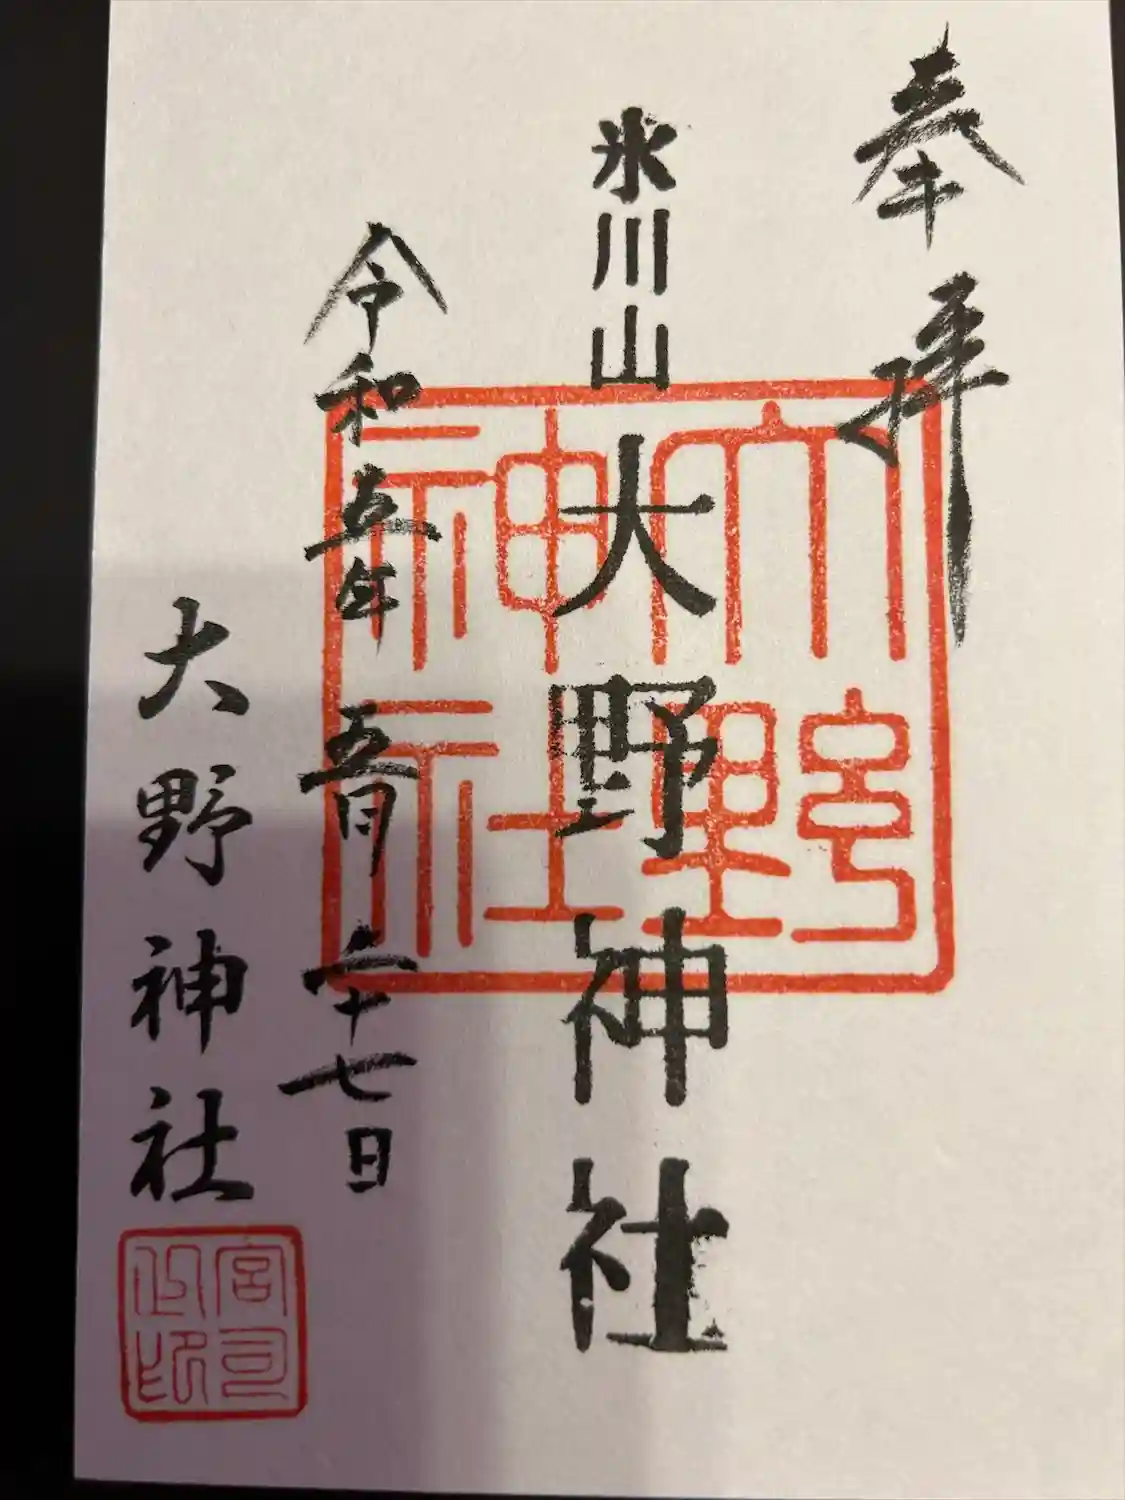 奉拝
氷川山大野神社
大野神社
令和五年五月二十七日
大野神社
宮司之印